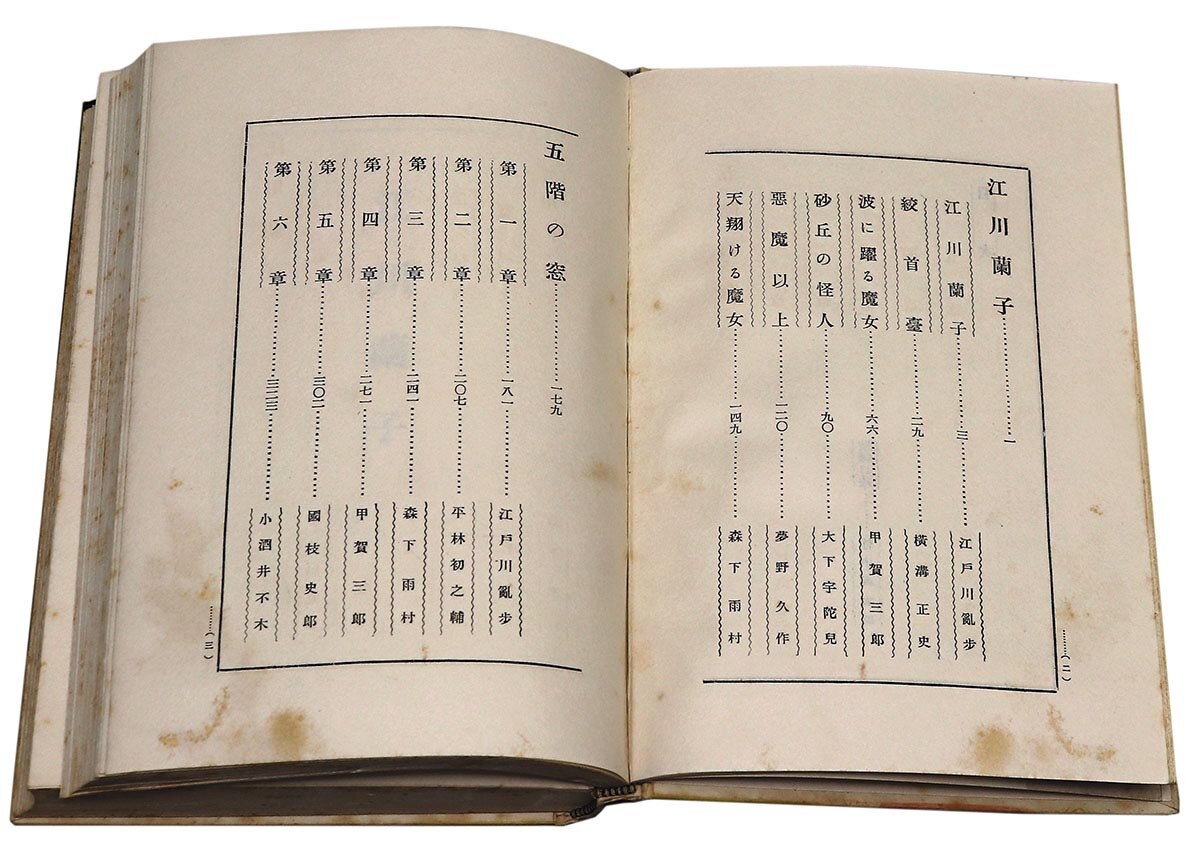 江川蘭子…………一
江川蘭子…………三…………江戶川亂步
絞首臺…………二九…………橫溝正史
波に躍る魔女…………六六…………甲賀三郎
砂丘の怪人…………九〇…………大下宇陀兒
惡魔以上…………一二〇…………夢野久作
天翔ける魔女…………一四九…………森下雨村
……(二)
五階の窓…………一七九
第一章…………一八一…………江戶川亂步
第二章…………二〇七…………平林初之輔
第三章…………二四一…………森下雨村
第四章…………二七一…………甲賀三郎
第五章…………三〇二…………國枝史郎
第六章…………三二三…………小酒井不木
……(三)